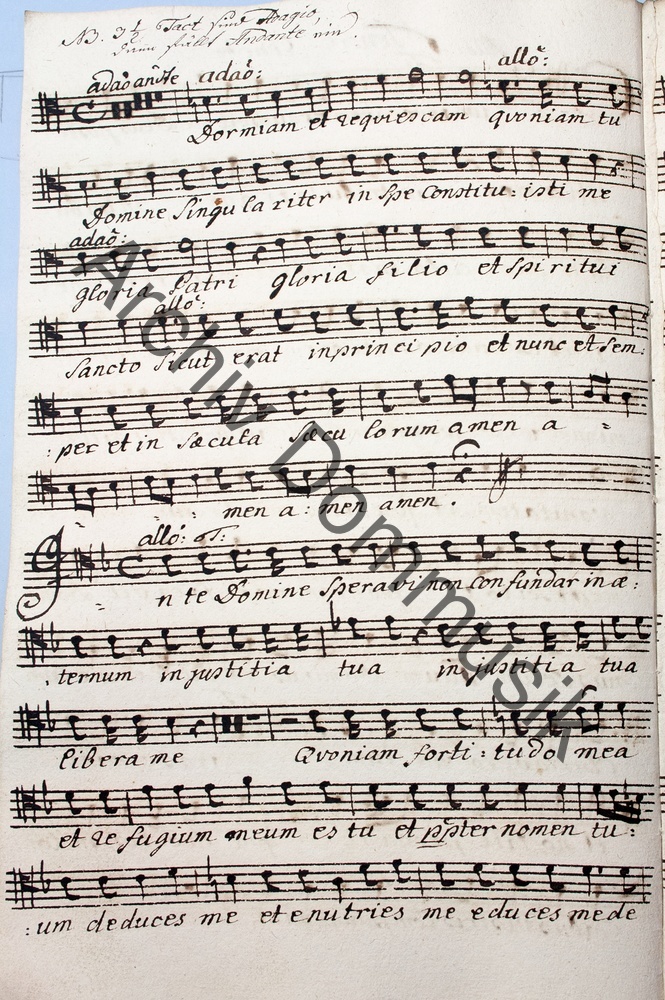 NB. 3 1/2 Tact sind Adagio,
dann fällt Andante ein.
adaõ andte adaõ: allõ:
Dormiam et requiescam qvoniam tu
Domine singulariter in spe constitu: isti me
adaõ:
gloria Patri gloria filio et spiritui
allõ:
sancto sicut erat in principio et nunc et sem:
: per et in sæcula sæculorum amen a =
= men a: men amen.
allõ: T:
In te Domine speravi non confundar in æ:
. ternum in justitia tua in justitia tua
libera me Qvoniam forti: tudo mea
et refugium meum es tu et ppter nomen tu:
: um deduces me et enutries me educes me de
Archiv Dommusik